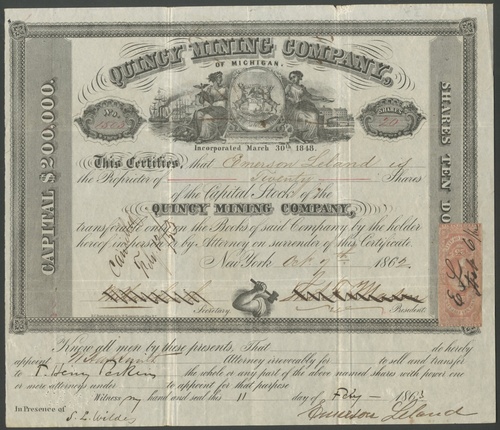 QUINCY MINING COMPANY,
OF MICHIGAN.
CAPITAL $200,000.
SHARES TEN DO
No.
SHARES
20
Incorporated March 30th 1848.
This Certifies, that Emerson Leland is
the Proprietor of Twenty Shares
of the Capital Stock of the
QUINCY MINING COMPANY,
transferable only on the Books of said Company by the holder
hereof in person or by Attorney on surrender of this Certificate.
New York 186
Secretary
President
Know all men by these presents, That do hereby
appoint Attorney irrevocably for to sell and transfer
to T. Henry Perkins the whole or any part of the above named shares with power one
or more attorneys under to appoint for that purpose
Witness my hand and seal this 11 day of Feby 1863
In Presence of
S. L. Wilde
Emerson Leland